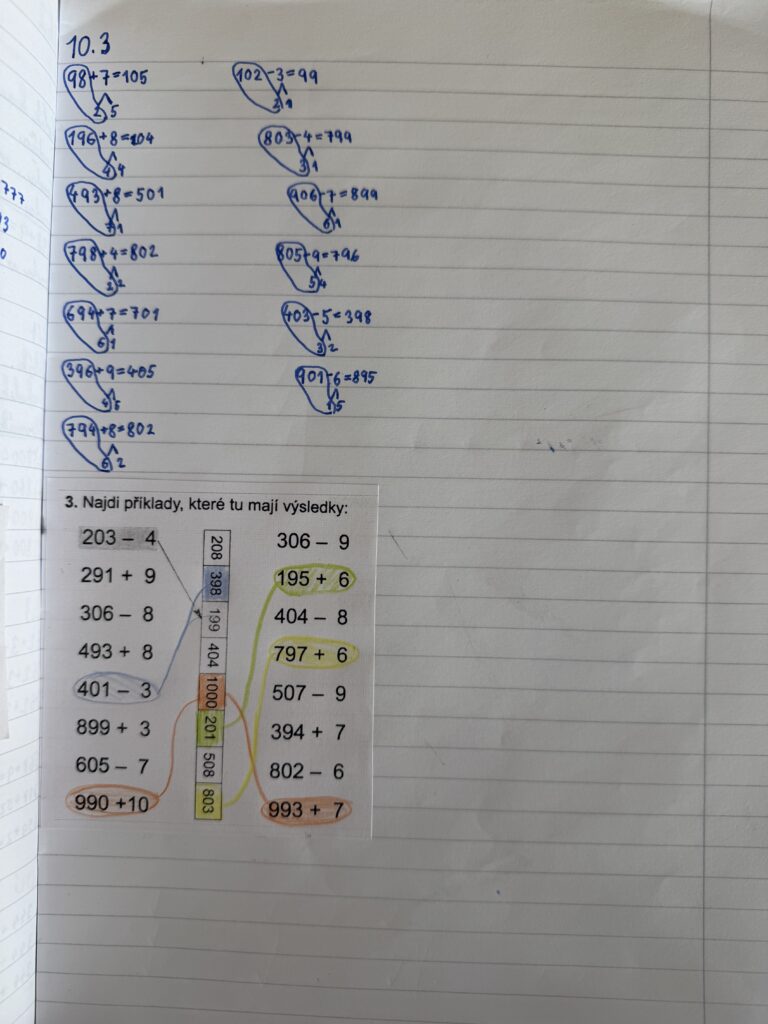 10.3
98+7=105
2 5
196+8=104
4 4
493+8=501
7 1
798+4=802
2 2
694+7=701
6 1
396+9=405
4 5
794+8=802
6 2
102-3=99
2 1
803-4=799
3 1
906-7=899
6 1
805-9=796
5 4
403-5=398
3 2
901-6=895
1 5
3. Najdi příklady, které tu mají výsledky:
203 – 4
291 + 9
306 – 8
493 + 8
401 – 3
899 + 3
605 – 7
990 +10
208
398
199
404
1000
201
508
803
306 – 9
195 + 6
404 – 8
797 + 6
507 – 9
394 + 7
802 – 6
993 + 7